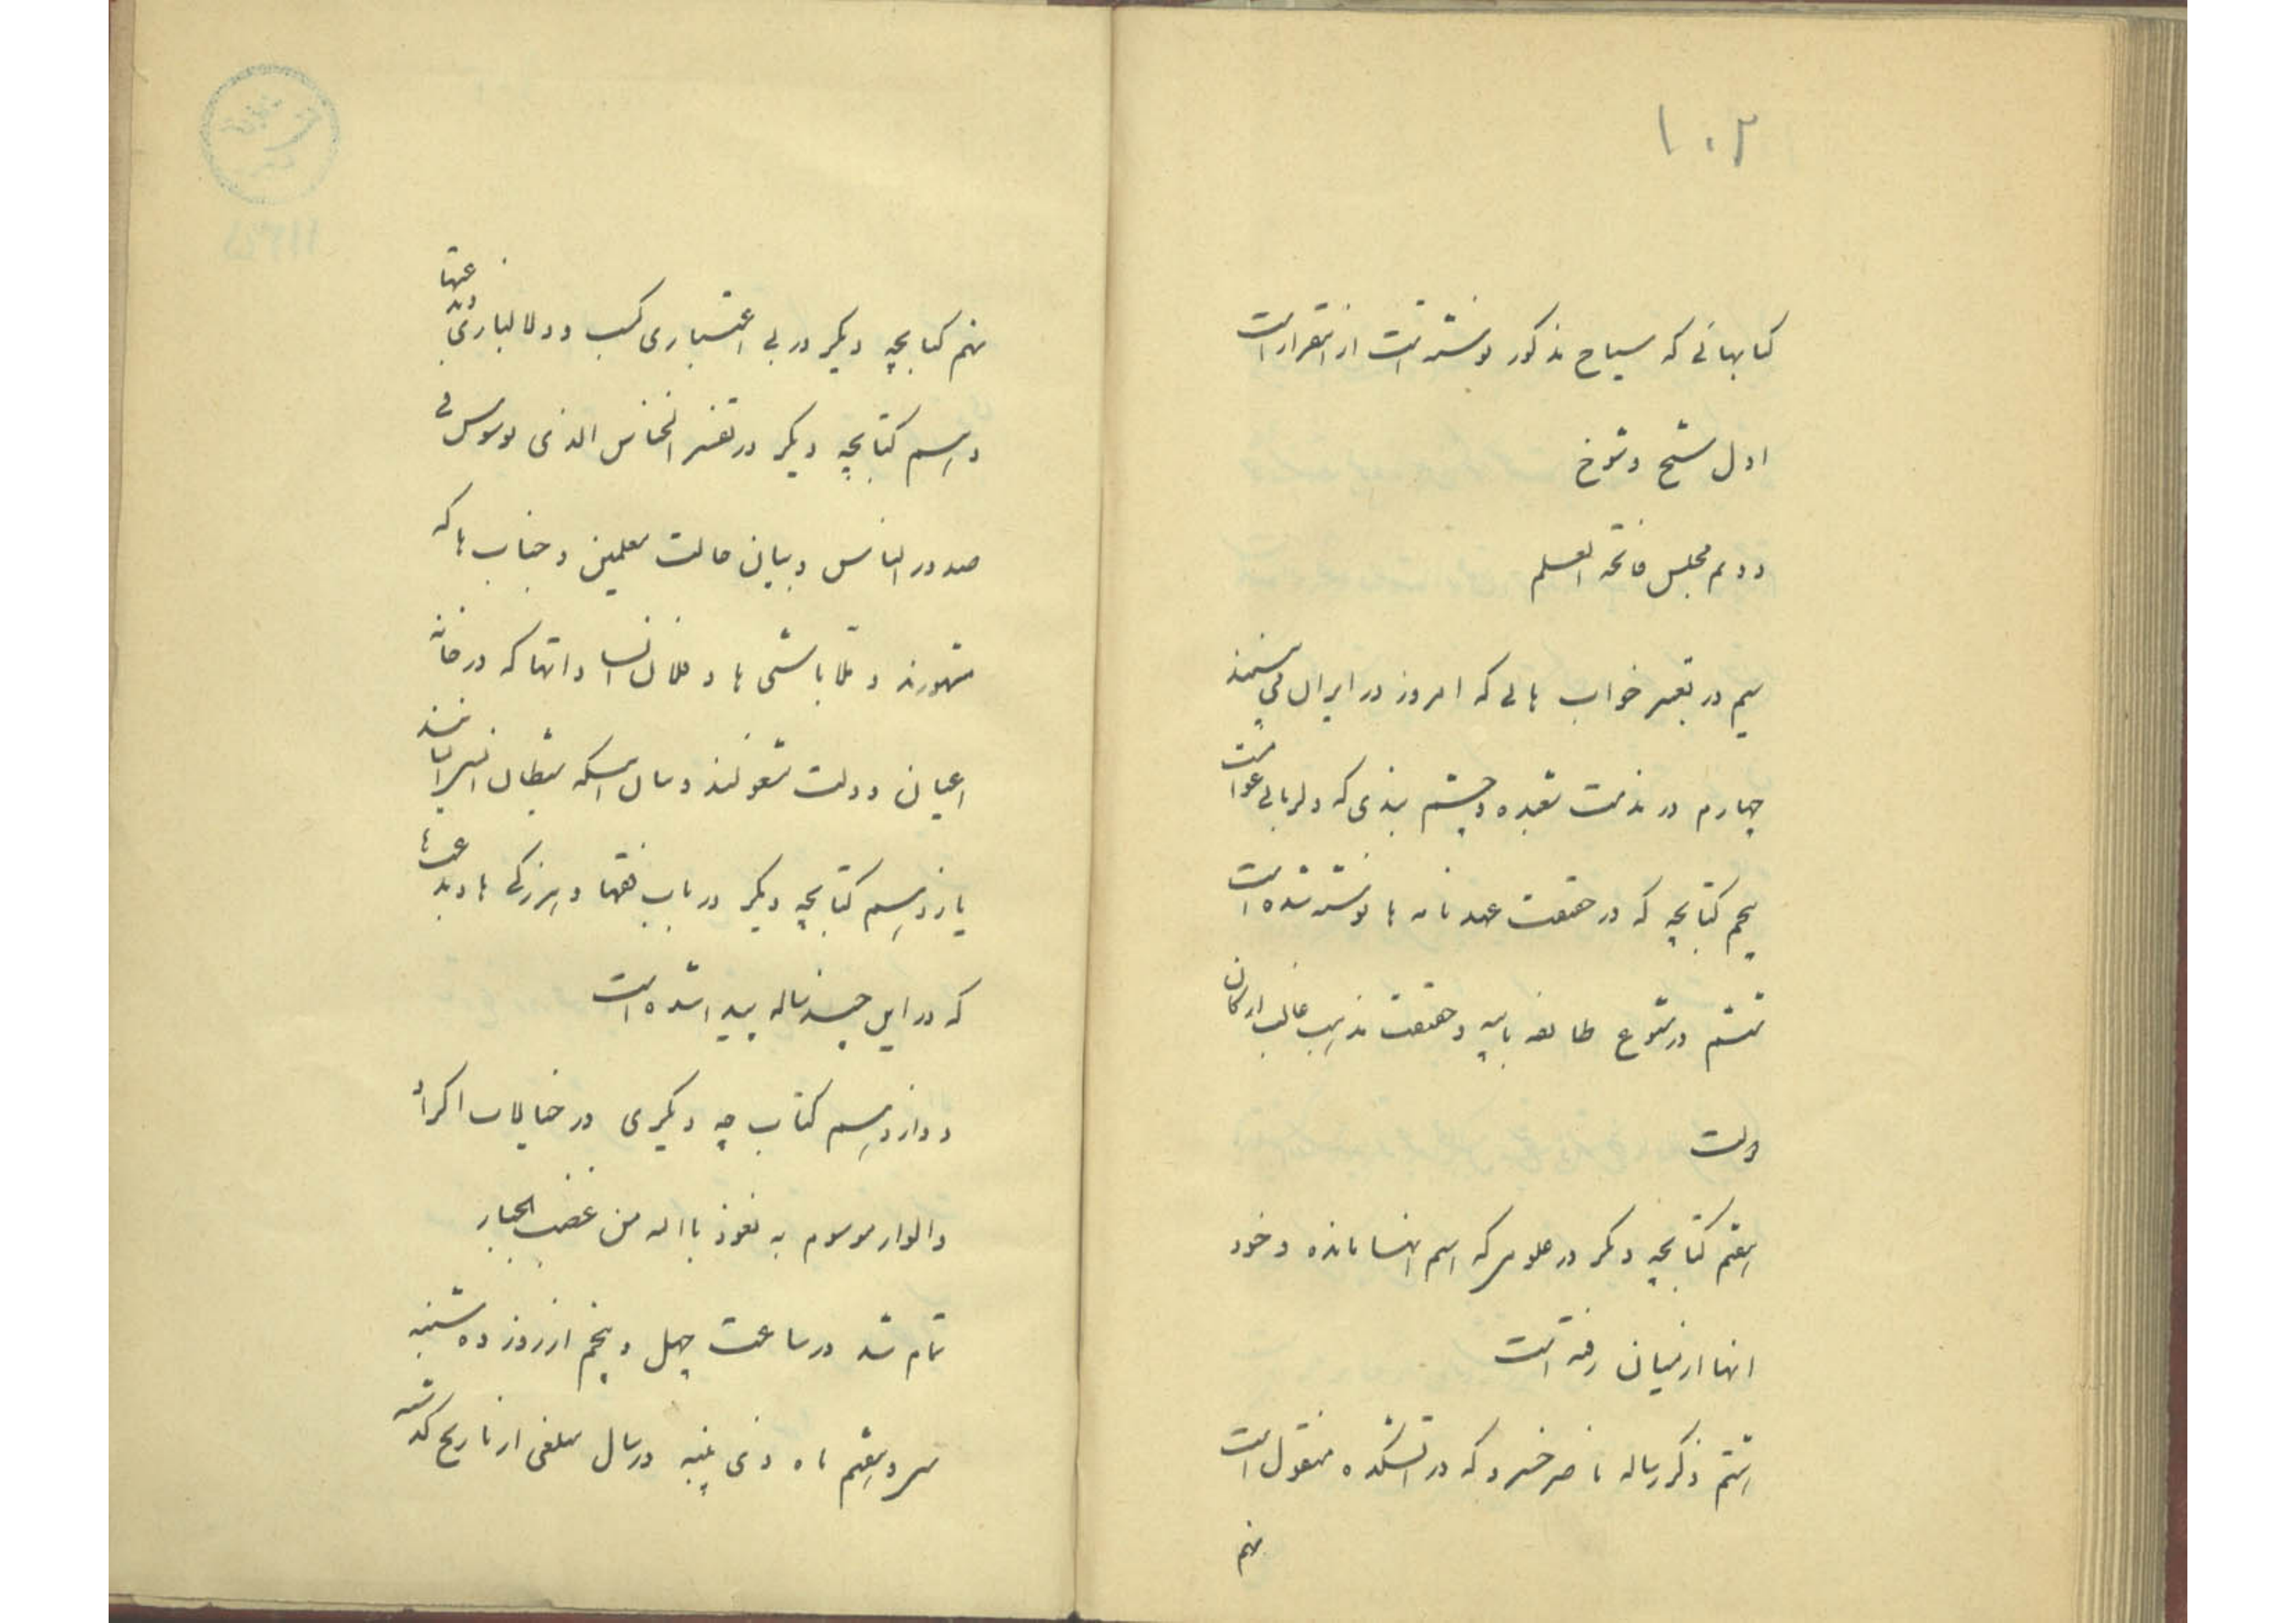 ۱۰۲
کتابهائی که سیاح مذکور نوشته است از اینقرار است
اول شیخ و شوخ
دویم مجلس فاتحه العلم
سیم در تعبیر خواب هائی که امروز در ایران می بینند
چهارم در مذمت شعبده و چشم بندی که دلربائی عوام است
پنجم کتابچه که در حقیقت عهدنامه ها نوشته شده است
ششم در شیوع طایفه بابیه و حقیقت مذهب غالب ارکان
دولت
هفتم کتابچه دیگر در علومی که اسم انها مانده و خود
انها از میان رفته است
هشتم ذکر رساله ناصر خسرو که در اتشکده منقول است
نهم
نهم کتابچه دیگر در بی اعتباری کسب و دلال بازی
دهم کتابچه دیگر در تفسیر الخناس الذی یوسوس فی
صدور الناس و بیان حالت معلمین و جناب ها که
مشهورند و ملا باشی ها و ملای نسا و انها که در خانه
اعیان دولت مشغولند و حال اینکه شیطان
یازدهم کتابچه دیگر در باب فقها و هرزگی ها و بدعت ها
که در این چند ساله پیدا شده است
دوازدهم کتاب چه دیگری در خیالات اکراد
و الوار موسوم به نعوذ باالله من غضب الجبار
تمام شد در ساعت چهل و پنجم از روز ده شنبه
سی و هفتم ماه ذی پنبه در سال ملغی از تاریخ گذشته